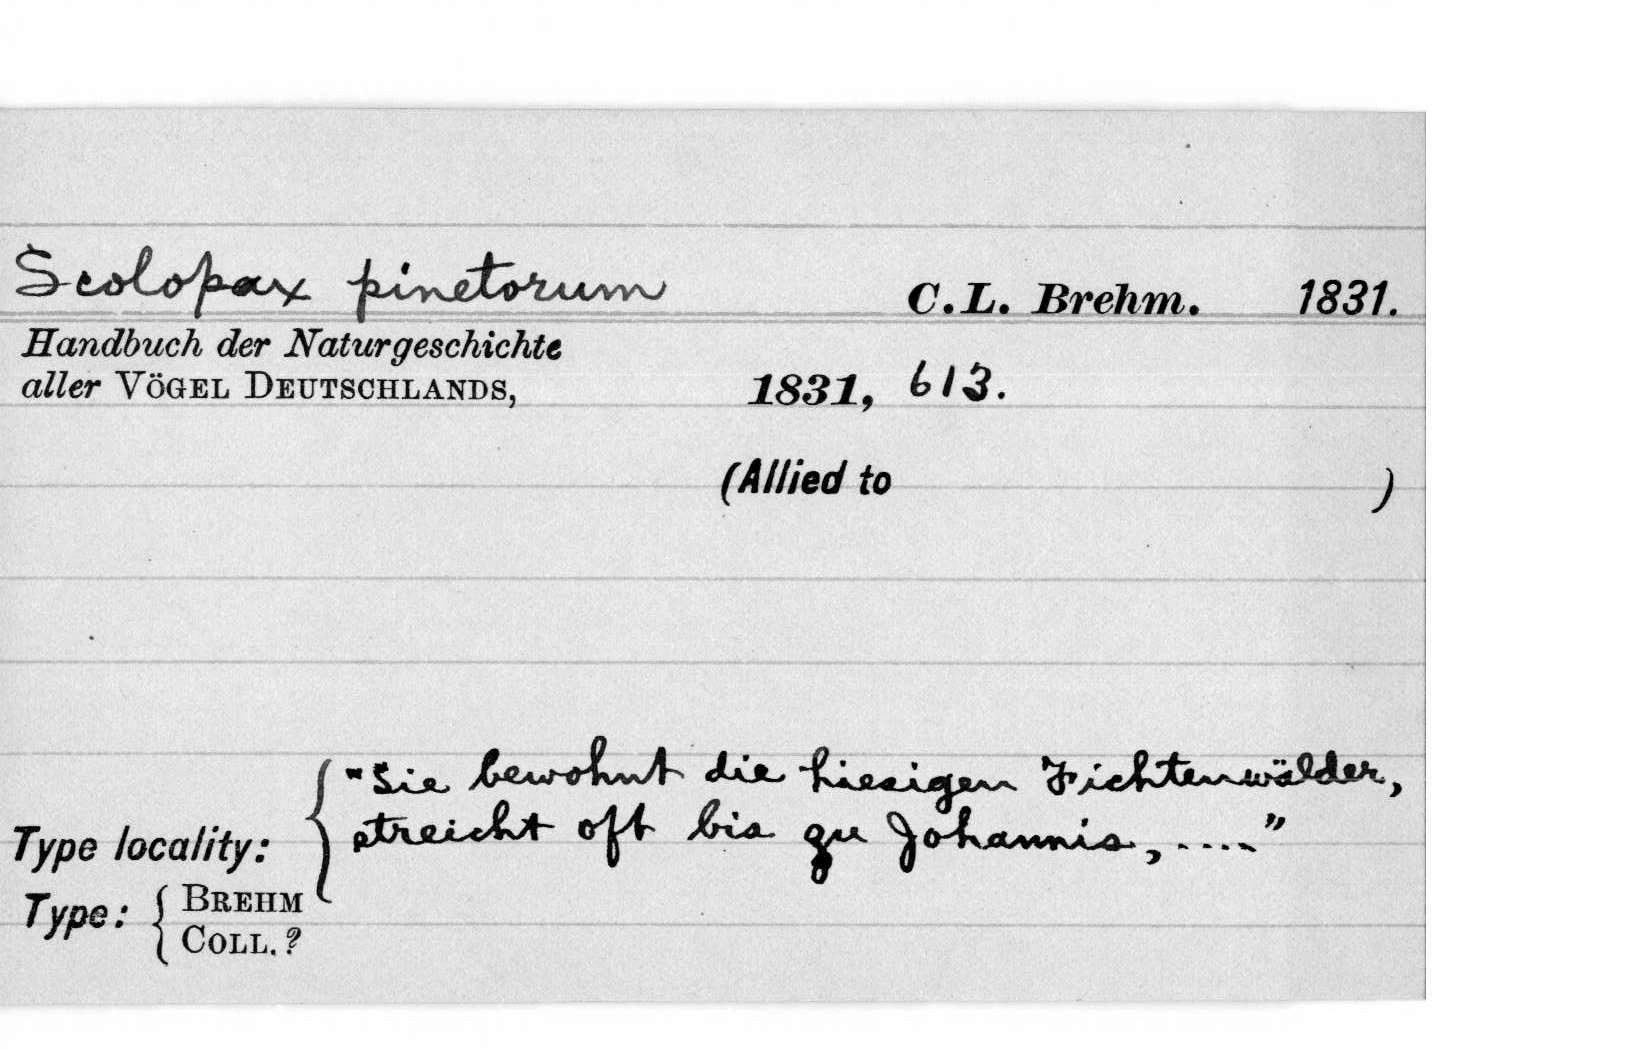 Scolopax pinetorum C.L. Brehm. 1831.
Handbuch der Naturgeschichte
aller VÖGEL DEUTSCHLANDS, 1831, 613.
(Allied to )
"Sie bewohnt die hiesigen Fichtenwälder,
Type locality: { streicht oft bis zu Johannis, ...."
Type: { BREHM
COLL. ?